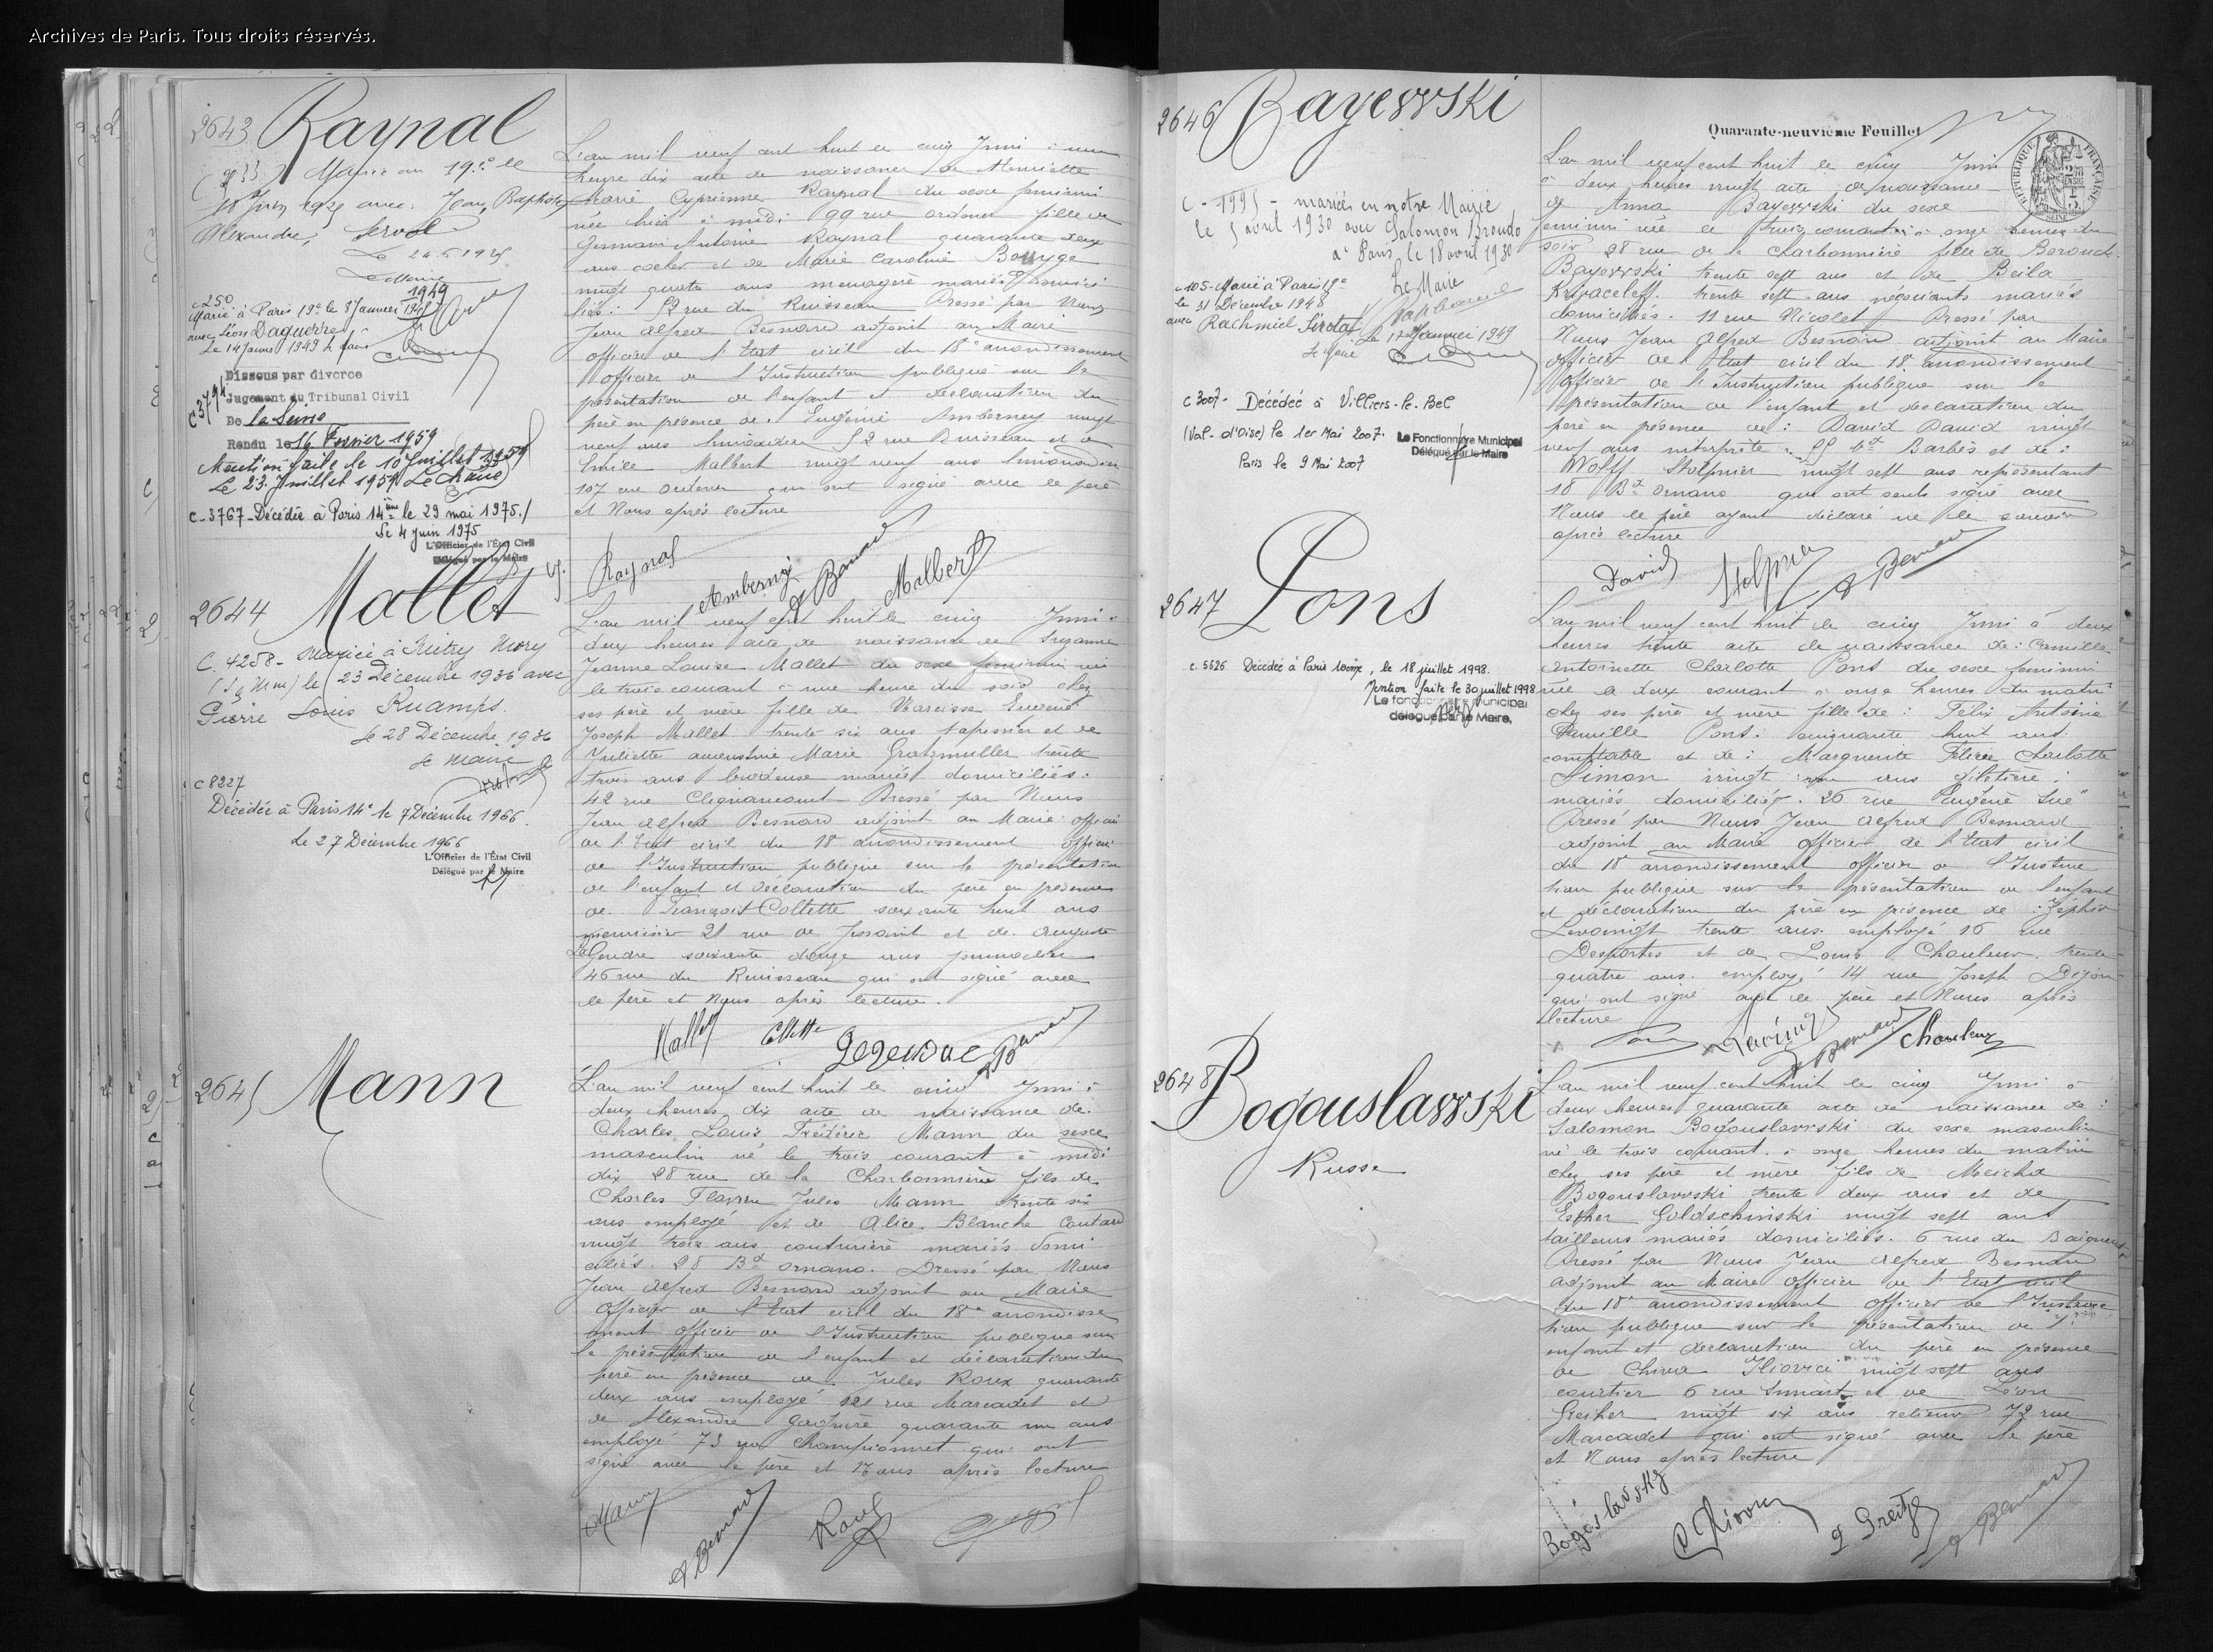 Archives de Paris. Tous droits réservés.
2643 Raynal
Mariée au 19e le
18 Juin 1929 avec Jean Baptiste
Alexandre, Servol
Le 24.6.1929
Le Maire
1949
c 250
Marié à Paris 19e le 8 Janvier
avec Léon Daguerre
Le 14 Janvier 1949
Dissous par divorce
C3794
Jugement du Tribunal Civil
De la Seine
Rendu le 16 Février 1959
Mention faite le 10 Juillet 1959
Le 23 Juillet 1959 Le Maire
C-3767-Décédée à Paris 14ème le 29 mai 1975./
Le 4 juin 1975
L'Officier de l'État Civil
Délégué par le Maire
L'an mil neuf cent huit le cinq Juin à une
heure dix acte de naissance de Henriette
Marie Cyprienne Raynal du sexe féminin
née hier à midi 99 rue ordener fille de
Germain Antoine Raynal quarante deux
ans cocher et de Marie Caroline
vingt quatre ans ménagère mariés domici
liés: 52 rue du Ruisseau Dressé par Nous
Jean Alfred Besnard adjoint au Maire
officier de l'Etat civil du 18e arrondissement
officier de l'Instruction publique sur la
présentation de l'enfant et déclaration du
père en présence de: Eugénie Amberney vingt
neuf ans 52 rue Ruisseau et de
Emile Malbert vingt neuf ans
107 rue Ordener qui ont signé avec le père
et Nous après lecture
Raynal Amberny A Besnard Malbert
2644 Mallet
C. 4258- Mariée à Mitry Mory
(S & Mne) le 23 Décembre 1936 avec
Pierre Louis Ruamps.
le 28 Décembre 1936
Le Maire
C8227
Décédée à Paris 14e le 7 Décembre 1966.
Le 27 Décembre 1966
L'Officier de l'État Civil
Délégué par le Maire
L'an mil neuf cent huit le cinq Juin à
deux heures acte de naissance de Suzanne
Jeanne Louise Mallet du sexe féminin née
le trois courant à une heure du soir chez
ses père et mère fille de Narcisse Eugène
Joseph Mallet trente six ans tapissier et de
Juliette Augustine Marie Gratzmuller trente
trois ans brodeuse mariés domiciliés:
42 rue Clignancourt Dressé par Nous
Jean Alfred Besnard adjoint au Maire officier
de l'Etat civil du 18e arrondissement officier
de l'Instruction publique sur la présentation
de l'enfant et déclaration du père en présence
de: François Collette soixante huit ans
menuisier 21 rue de et de Auguste
Le Gendre soixante douze ans
46 rue du Ruisseau qui ont signé avec
le père et Nous après lecture.
Mallet Collette Legendre A Besnard
2645 Mann
L'an mil neuf cent huit le cinq Juin à
deux heures dix acte de naissance de:
Charles Louis Frédéric Mann du sexe
masculin né le trois courant à midi
dix 28 rue de la Charbonnière fils de
Charles Jules Mann trente six
ans employé et de Alice Blanche Coutard
vingt trois ans couturière mariés domi
ciliés: 28 Bd Ornano. Dressé par Nous
Jean Alfred Besnard adjoint au Maire
officier de l'Etat civil du 18e arrondisse
ment officier de l'Instruction publique sur
la présentation de l'enfant et déclaration du
père en présence de: Jules Roux quarante
deux ans employé 121 rue Marcadet et
de Alexandre quarante un ans
employé 73 rue Championnet qui ont
signé avec le père et Nous après lecture
Mann A Besnard Roux
Quarante-neuvième Feuillet
RÉPUBLIQUE FRANÇAISE
SEINE
2646 Bayewski
C-1995- mariés en notre Mairie
le 5 avril 1930 avec Salomon Broudo
à Paris, le 18 avril 1930
Le Maire
c 105-Marié à Paris 19e
le 31 Décembre 1948
avec Rachmiel Sirota
Le 12 Janvier 1949
Le Maire
C 3007- Décédée à Villiers-le-Bel
(Val-d'Oise) le 1er Mai 2007.
Paris le 9 Mai 2007
Le Fonctionnaire Municipal
Délégué par le Maire
L'an mil neuf cent huit le cinq Juin
à deux heures vingt acte de naissance
de Anna Bayewski du sexe
féminin née le trois courant à onze heures du
soir 28 rue de la Charbonnière fille de Borouch
Bayewski trente sept ans et de Beila
Krivaceleff trente sept ans négociants mariés
domiciliés: 11 rue Nicolet Dressé par
Nous Jean Alfred Besnard adjoint au Maire
officier de l'Etat civil du 18e arrondissement
officier de l'Instruction publique sur la
présentation de l'enfant et déclaration du
père en présence de: David David vingt
neuf ans interprète 55 Bd Barbès et de:
Wolff Stolpnier vingt sept ans représentant
18 Bd Ornano qui ont seuls signé avec
Nous le père ayant déclaré ne le savoir
après lecture
David Stolpnier A Besnard
2647 Pons
c. 5626 Décédée à Paris 10ème, le 18 juillet 1998.
Mention faite le 30 juillet 1998
Le fonctionnaire municipal
délégué par le Maire,
L'an mil neuf cent huit le cinq Juin à deux
heures trente acte de naissance de: Camille
Antoinette Charlotte Pons du sexe féminin
née le deux courant à onze heures du matin
chez ses père et mère fille de: Félix Antoine
Camille Pons: cinquante huit ans
comptable et de: Marguerite Félicie Charlotte
Simon vingt ans giletière:
mariés domiciliés: 26 rue "Eugène Sue"
Dressé par Nous Jean Alfred Besnard
adjoint au Maire officier de l'Etat civil
du 18e arrondissement officier de l'Instruc
tion publique sur la présentation de l'enfant
et déclaration du père en présence de: Zéphir
trente ans employé 16 rue
Desportes et de Louis Chauleur trente
quatre ans employé 14 rue Joseph Dijon
qui ont signé avec le père et Nous après
lecture
Pons A Besnard Chauleur
2648 Bogouslawski
Russe
L'an mil neuf cent huit le cinq Juin à
deux heures quarante acte de naissance de:
Salomon Bogouslawski du sexe masculin
né le trois courant à onze heures du matin
chez ses père et mère fils de Meicha
Bogouslawski trente deux ans et de
Esther Goldschinski vingt sept ans
tailleurs mariés domiciliés: 6 rue du Baigneur
Dressé par Nous Jean Alfred Besnard
adjoint au Maire officier de l'Etat civil
du 18e arrondissement officier de l'Instruc
tion publique sur la présentation de l'
enfant et déclaration du père en présence
de Iliovici vingt sept ans
courtier 6 rue Simart et de Léon
Greiher vingt six ans relieur 72 rue
Marcadet qui ont signé avec le père
et Nous après lecture
Bogoslavsky A Besnard